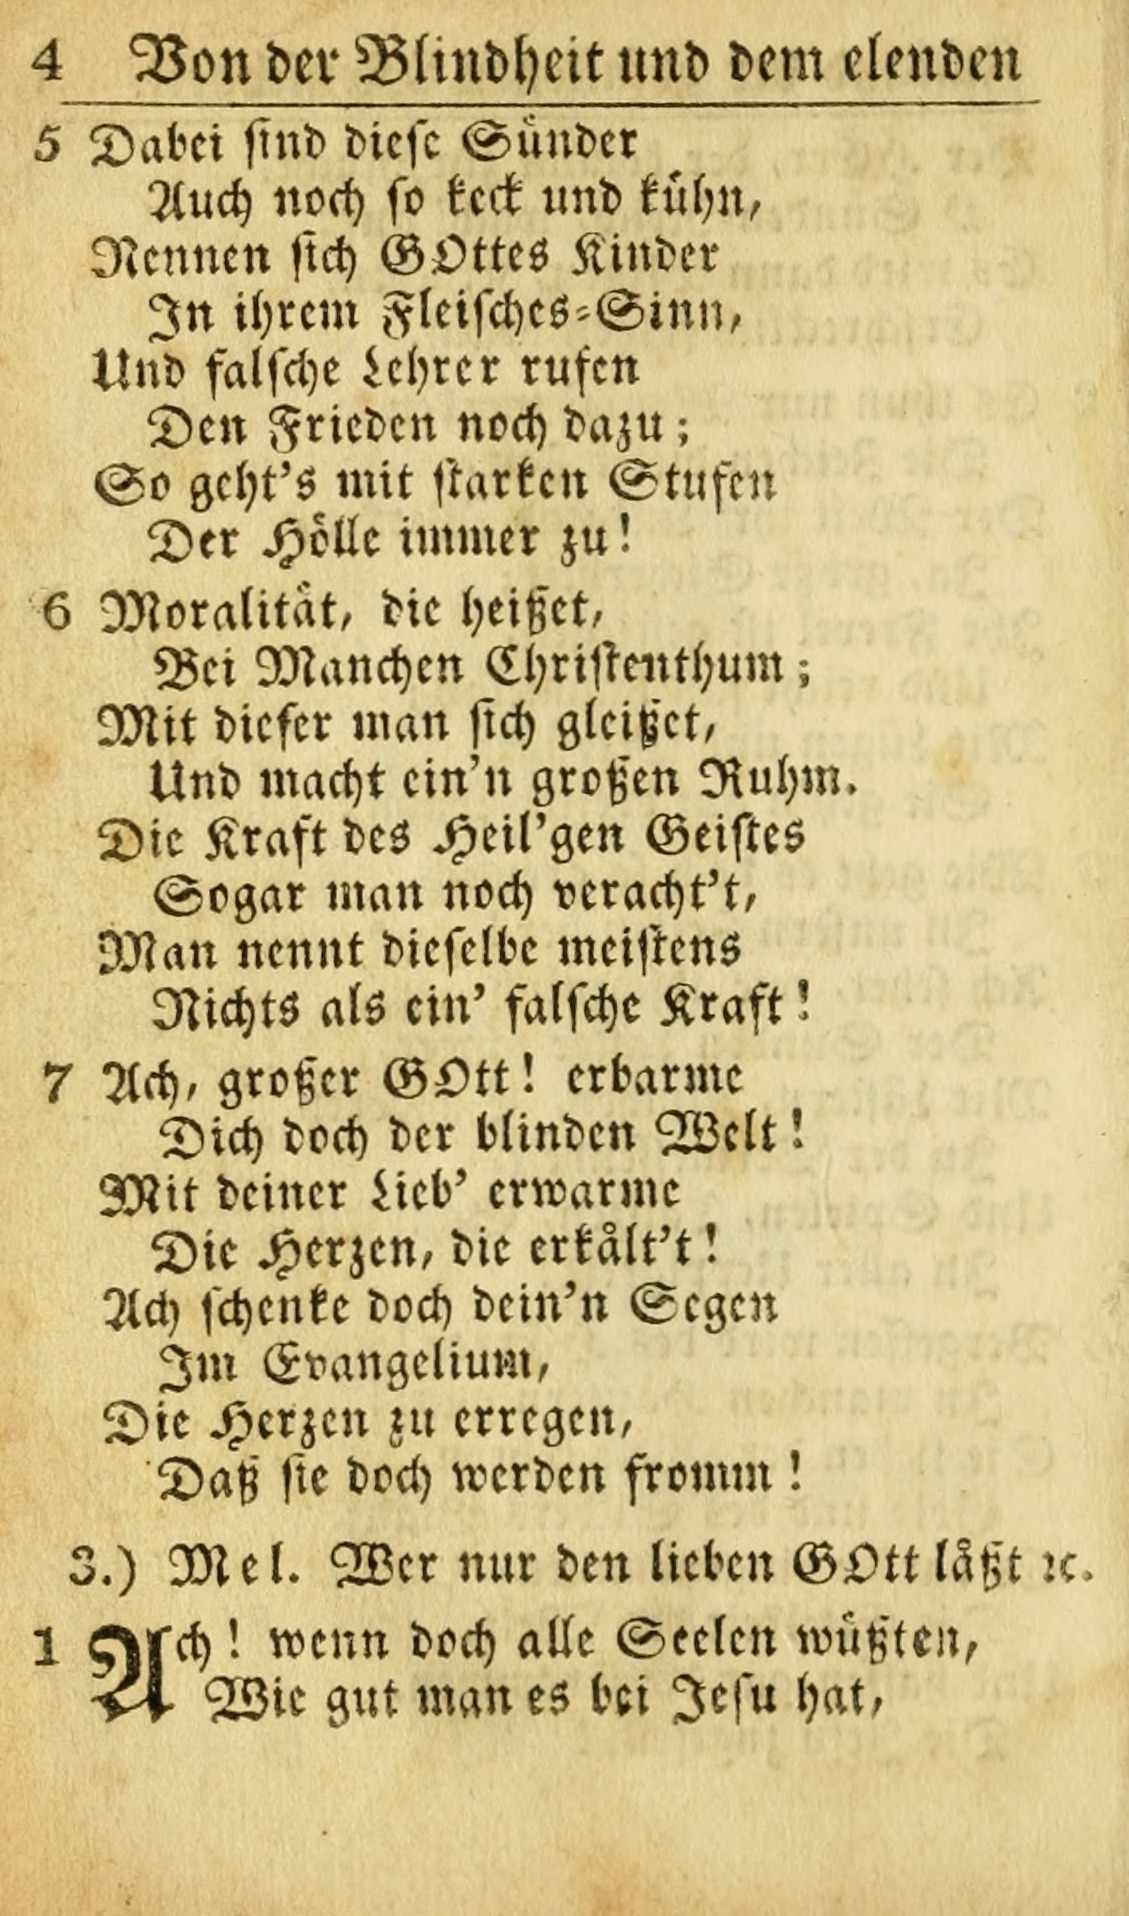 4 Von der Blindheit und dem elenden
5 Dabei sind diese Sünder
Auch noch so keck und kühn,
Nennen sich GOttes Kinder
In ihrem Fleisches-Sinn,
Und falsche Lehrer rufen
Den Frieden noch dazu;
So geht's mit starken Stufen
Der Hölle immer zu!
6 Moralität, die heißet,
Bei Manchen Christenthum;
Mit dieser man sich gleißet,
Und macht ein'n großen Ruhm.
Die Kraft des Heil'gen Geistes
Sogar man noch veracht't,
Man nennt dieselbe meistens
Nichts als ein' falsche Kraft!
7 Ach, großer GOtt! erbarme
Dich doch der blinden Welt!
Mit deiner Lieb' erwarme
Die Herzen, die erkält't!
Ach schenke doch dein'n Segen
Im Evangelium,
Die Herzen zu erregen,
Daß sie doch werden fromm!
3.) Mel. Wer nur den lieben GOtt läßt ꝛc.
1 Ach! wenn doch alle Seelen wüßten,
Wie gut man es bei Jesu hat,